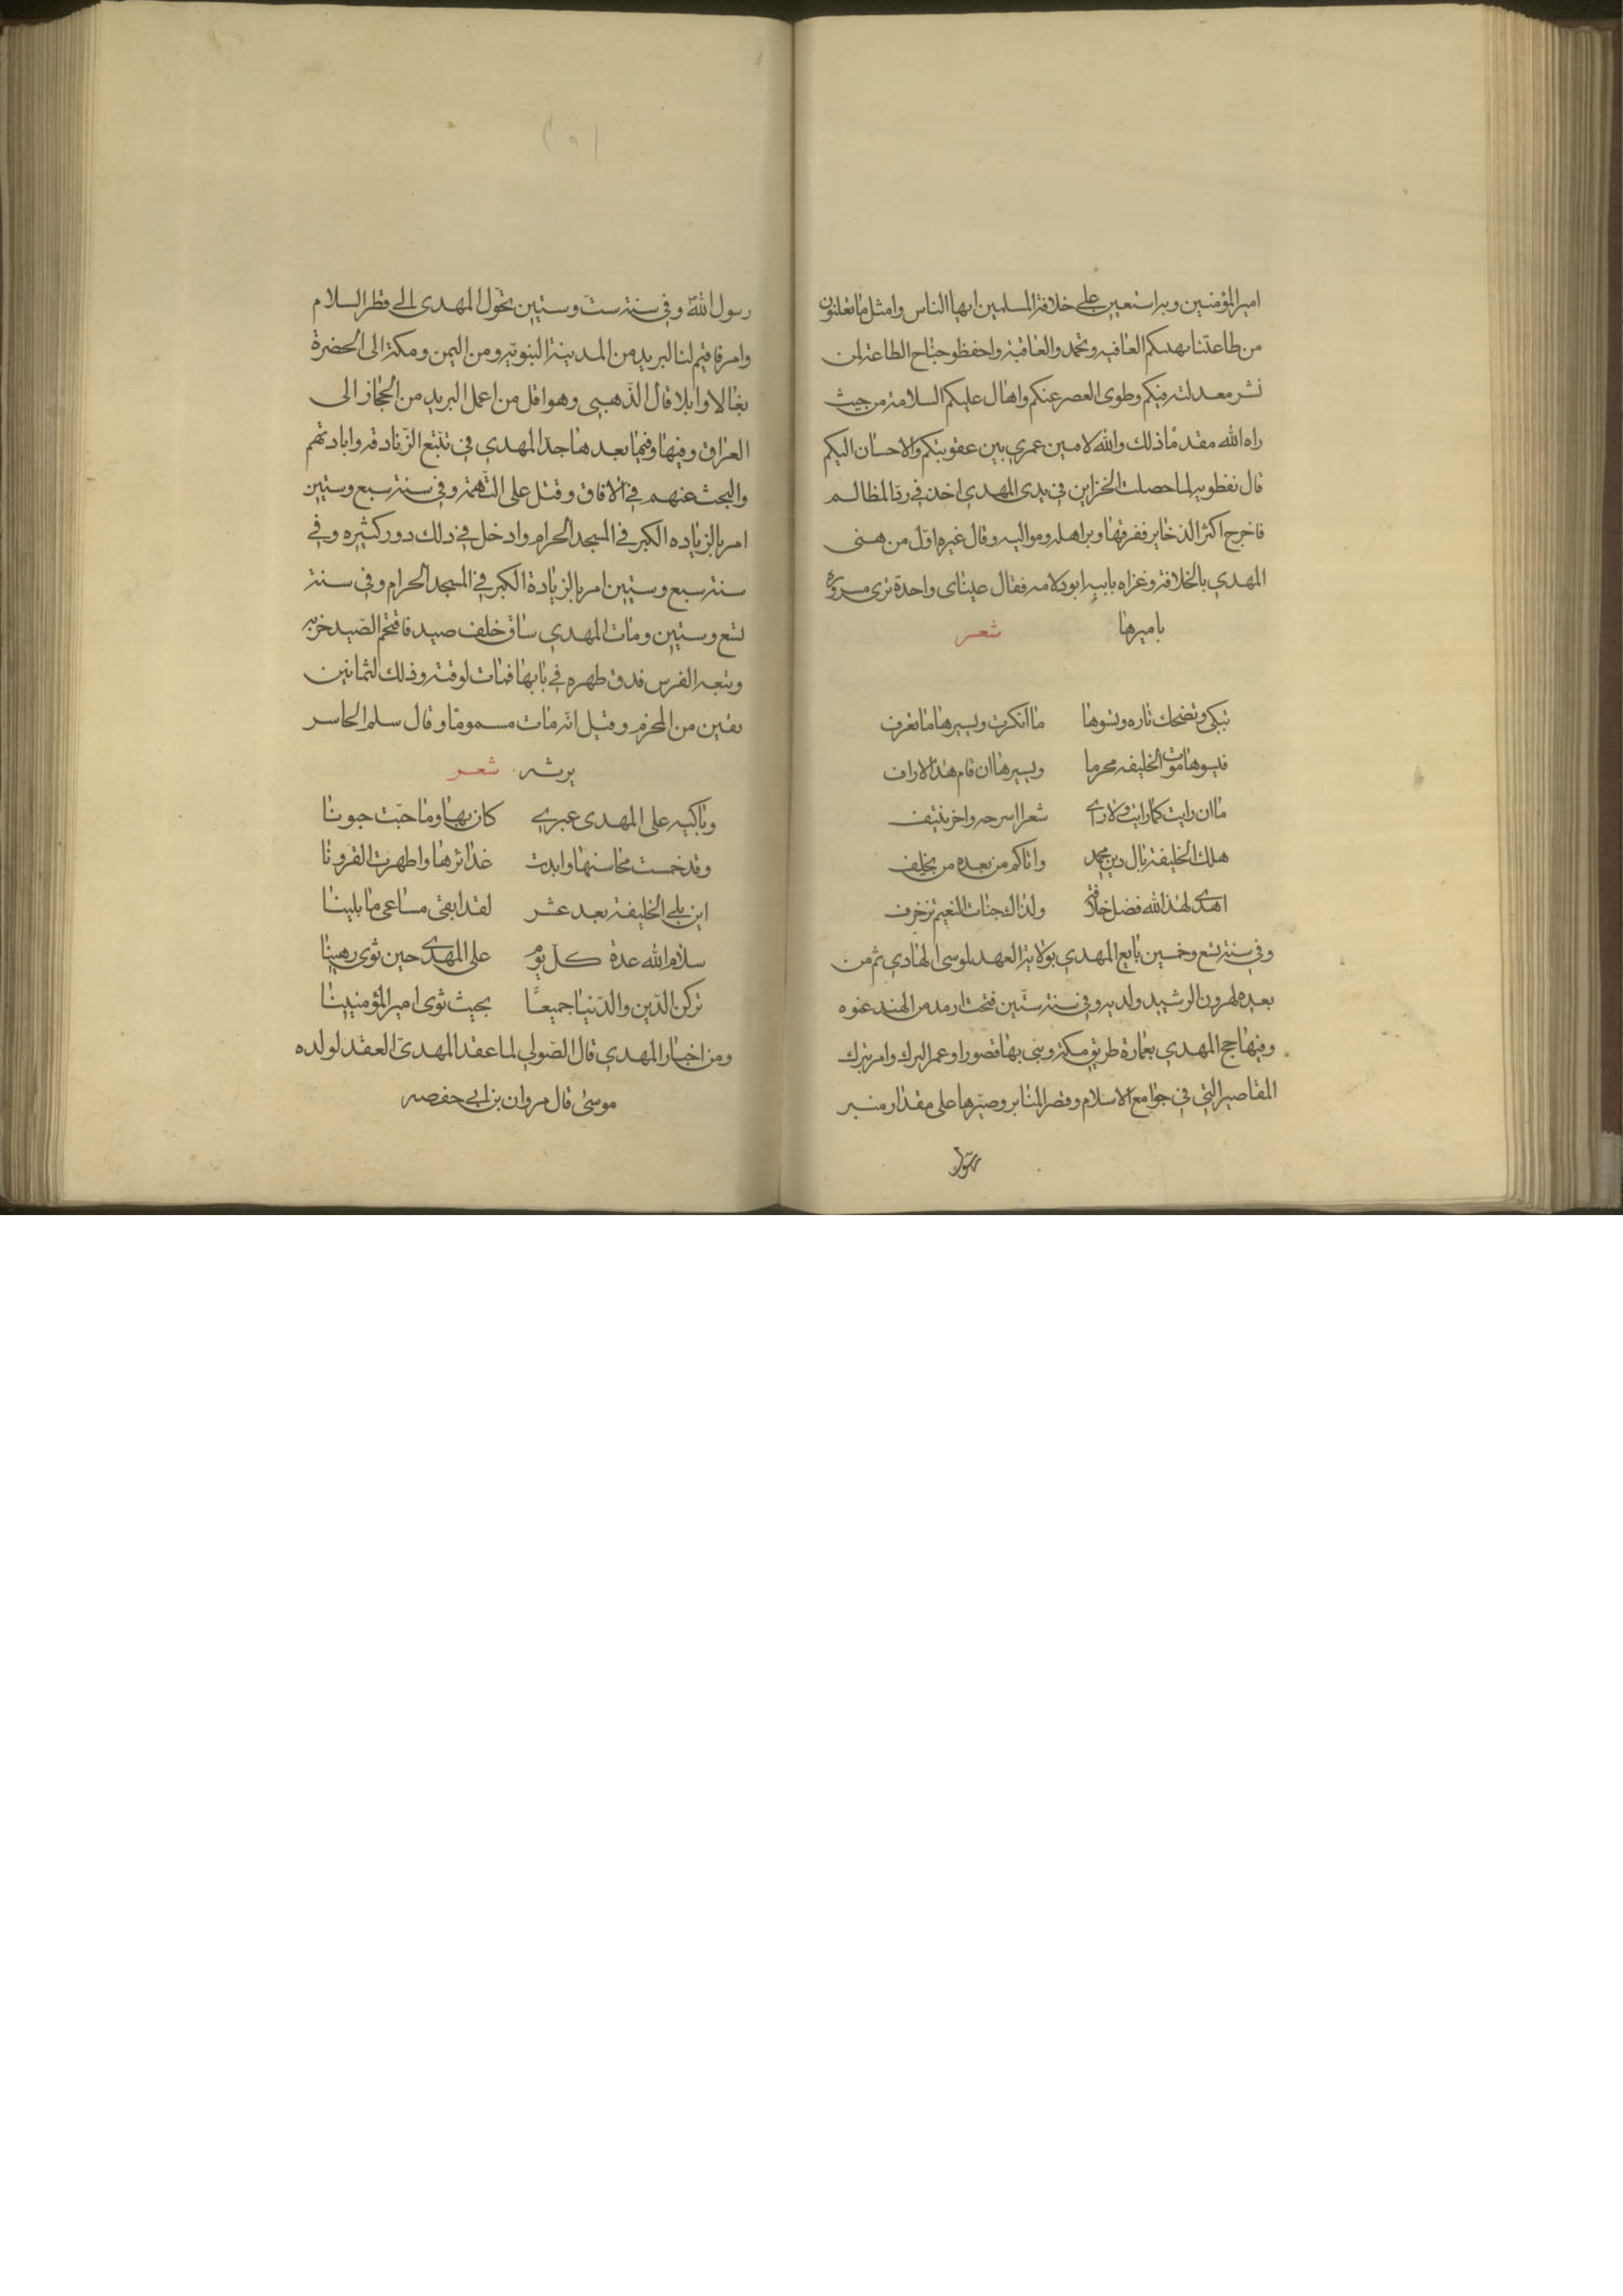 امير المؤمنين وبه استعين على خلافة المسلمين ايها الناس وامثل ما تعلنون
من طاعتنا يهبكم العافيه وتحمد والعاقبة واحفظو جناح الطاعة لمن
نشر معدلته فيكم وطوى العصر عنكم واهال عليكم السلامة من حيث
راه الله مقدما ذلك والله لامين عمري بين عقوبتكم والاحسان اليكم
قال نفطويه لما حصلت الخزاين في يدي المهدي اخذ في رد المظالم
فاخرج اكثر الذخاير ففرقها وبر اهله ومواليه وقال غيره اول من هنى
المهدي بالخلافة وعزاه بابيه ابو دلامه فقال عيناى واحدة ترى مسروره
باميرها شعر
تبكي وتضحك تاره ويسوها ما انكرت ويسيرها ما تعرف
فيسوها موت الخليفه محرما ويسيرها ان قام هذا الاراف
ما ان رايت كما رايت ولا ارى شعرا اسرحه واخر ينتيف
هلك الخليفة يال دين محمد واتاكم من بعده من يخلف
اهدى لهذا الله فضل خلافة ولذاك جنات النعيم تزخرف
وفي سنة تسع وخمسين بايع المهدي بولاية العهد لموسى الهادي ثم من
بعده لهرون الرشيد ولديه وفي سنة ستين فتحت اربد من الهند عنوه
وفيها حج المهدي بعمارة طريق مكة وبنى بها قصورا وعمر البرك وامر بترك
المقاصير التي في جوامع الاسلام وقصر المنابر وصيرها على مقدار منبر
رسول
(٩)
رسول الله وفي سنة ست وستين تحول المهدى الى قطر السلام
وامر فاقيم لنا البريد من المدينة النبوية ومن اليمن ومكة الى الحضرة
بغالا وابلا قال الذهبي وهو اول من اعمل البريد من الحجاز الى
العراق وفيها وفيما بعدها جد المهدي في تتبع الزنادقه وابادتهم
والبحث عنهم في الافاق وقتل على التهمة وفي سنة سبع وستين
امر بالزياده الكبر في المسجد الحرام وادخل في ذلك دور كثيره وفي
سنة سبع وستين امر بالزيادة الكبر في المسجد الحرام وفي سنة
تسع وستين ومات المهدي ساق خلف صيد فاقتحم الصيد خربه
وتبعه الفرس فدق ظهره في بابها فمات لوقته وذلك لثمانين
بقين من المحرم وقيل انه مات مسموما وقال سلم الخاسر
يرثه شعر
وباكيه على المهدى عبرى كان بها وما حبت جونا
وقد خمست محاسنها وابدت غدائرها واظهرت القرونا
اين بلي الخليفة بعد عشر لقد ابقى مساعى ما بلينا
سلام الله عدة كل يوم على المهدى حين ثوى رهينا
تركن الدين والدنيا جميعًا بحيث ثوى امير المؤمنينا
ومن اخبار المهدي قال الصولي لما عقد المهدى العقد لولده
موسى قال مروان بن ابي حفصه